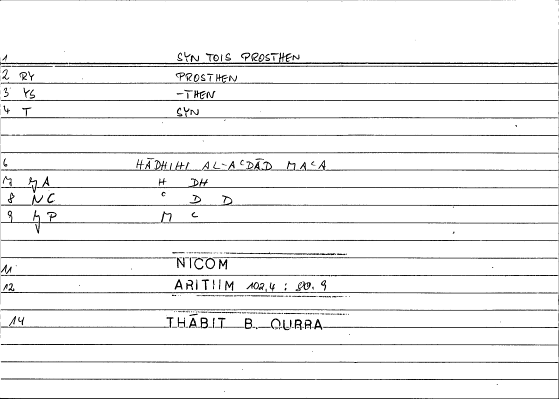 1 SYN TOIS PROSTHEN
2 RY PROSTHEN
3 YS -THEN
4 T SYN
6 HĀDHIHI AL-AᶜDĀD MAᶜA
A H DH
8 NC ᶜ D D
9 P M ᶜ
11 NICOM
12 ARITIIM 102,4 : 90.9
14 THĀBIT B. QURRA